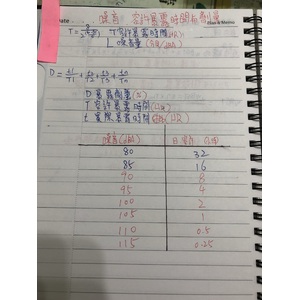 噪音 容許暴露時間與劑量
T 容許暴露時間(HR)
L 噪音量(分貝/dBA)
D = t1/T1 + t2/T2 + t3/T3 + tn/Tn
D 暴露劑量(%)
T 容許暴露時間(HR)
t 實際暴露時間(HR)
噪音(dBA)
80 32
85 16
90 8
95 4
100 2
105 1
110 0.5
115 0.25